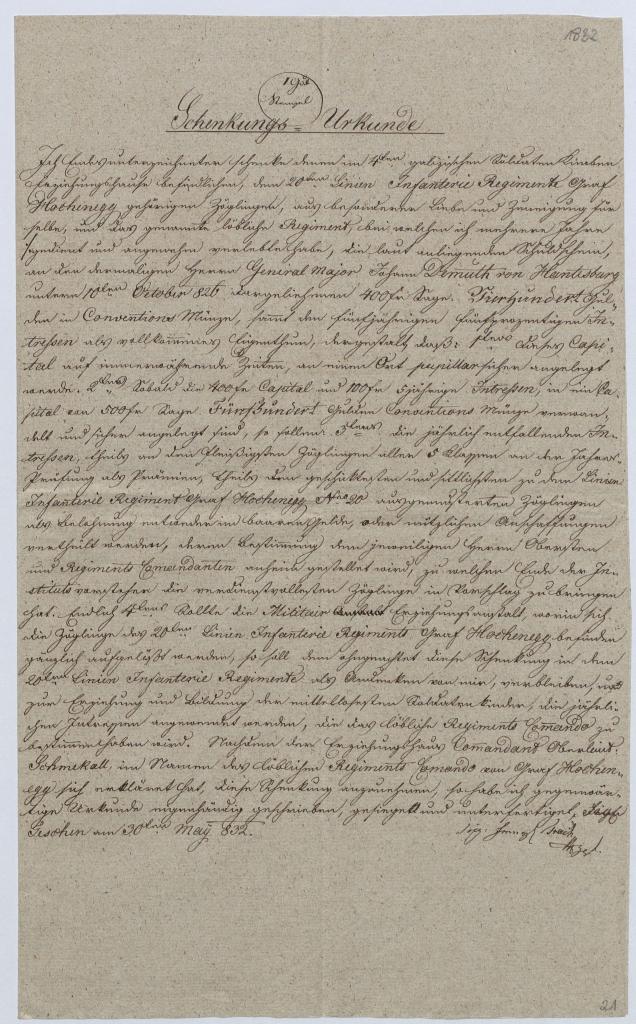 1832
Stempel
Schenkungs = Urkunde
Ich Endesunterzeichneter schenke denen im 4ten galizischen Soldaten Knaben
Erziehungshause befindlichen, dem 20ten Linien Infanterie Regimente Graf
Hochenegg gehörigen Zöglingen, aus besonderer Liebe und Zuneigung für
selbe, und das genannte löbliche Regiment, bei welchen ich mehrere Jahre
gedient und angenehm verlebt habe, die laut anliegenden Schuldschein,
an den dermaligen Herrn General Major Johann Demuth von Hantesburg
unterm 10ten October 826 dargeliehenen 400 fr Sage: Vierhundert Gul-
den in Conventions Münze, sammt den fünfjährigen fünfprozentigen In-
tressen als vollkommnes Eigenthum, dergestalt daß: 1tens dieses Capi-
tal auf immerwährende Zeiten, an einem Ort pupillarsicher angelegt
werde. 2tens Sobald die 400 fr Capital und 100 fr 5jährige Intressen, in ein Ca-
pital von 500 fr Sage Fünfhundert Gulden Conventions Münze verwan-
delt und sicher angelegt sind, so sollen 3tens die jährlich entfallenden In-
tressen, theils an den fleißigsten Zöglingen aller 5 Klassen an der Jahres-
Prüfung als Prämien, theils den geschicktesten und sittlichsten zu dem Linien
Infanterie Regiment Graf Hochenegg Nro 20 ausgemusterten Zöglingen
als Belohnung entweder im baaren Gelde, oder nützlichen Anschaffungen
vertheilt werden, deren Bestimmung dem jeweiligen Herrn Obersten
und Regiments Comandanten anheim gestellet wird, zu welchen Ende der In-
stitutsvorsteher die verdienstvollesten Zöglinge in Vorschlag zu bringen
hat. Endlich 4tens Sollte die Militair Erziehungsanstalt, worin sich
die Zöglinge des 20ten Linien Infanterie Regiments Graf Hochenegg befinden
gänzlich aufgelößt werden, so soll dem ohngeachtet diese Schenkung in dem
20ten Linien Infanterie Regimente als Andenken von mir, verbleiben, und
zur Erziehung und Bildung der mittellosesten Soldatenkinder, die jährli-
chen Intressen angewendet werden, die das löbliche Regiments Comando zu
bestimmen haben wird. Nachdem der Erziehungshaus Comandant Oberleut:
Schmikall, im Namen des löblichen Regiments Comando von Graf Hochen-
egg sich erkläret hat, diese Schenkung anzunehmen, so habe ich gegenwär-
tige Urkunde eigenhändig geschrieben, gesiegelt und unterfertiget.
Teschen am 30ten May 832.
21